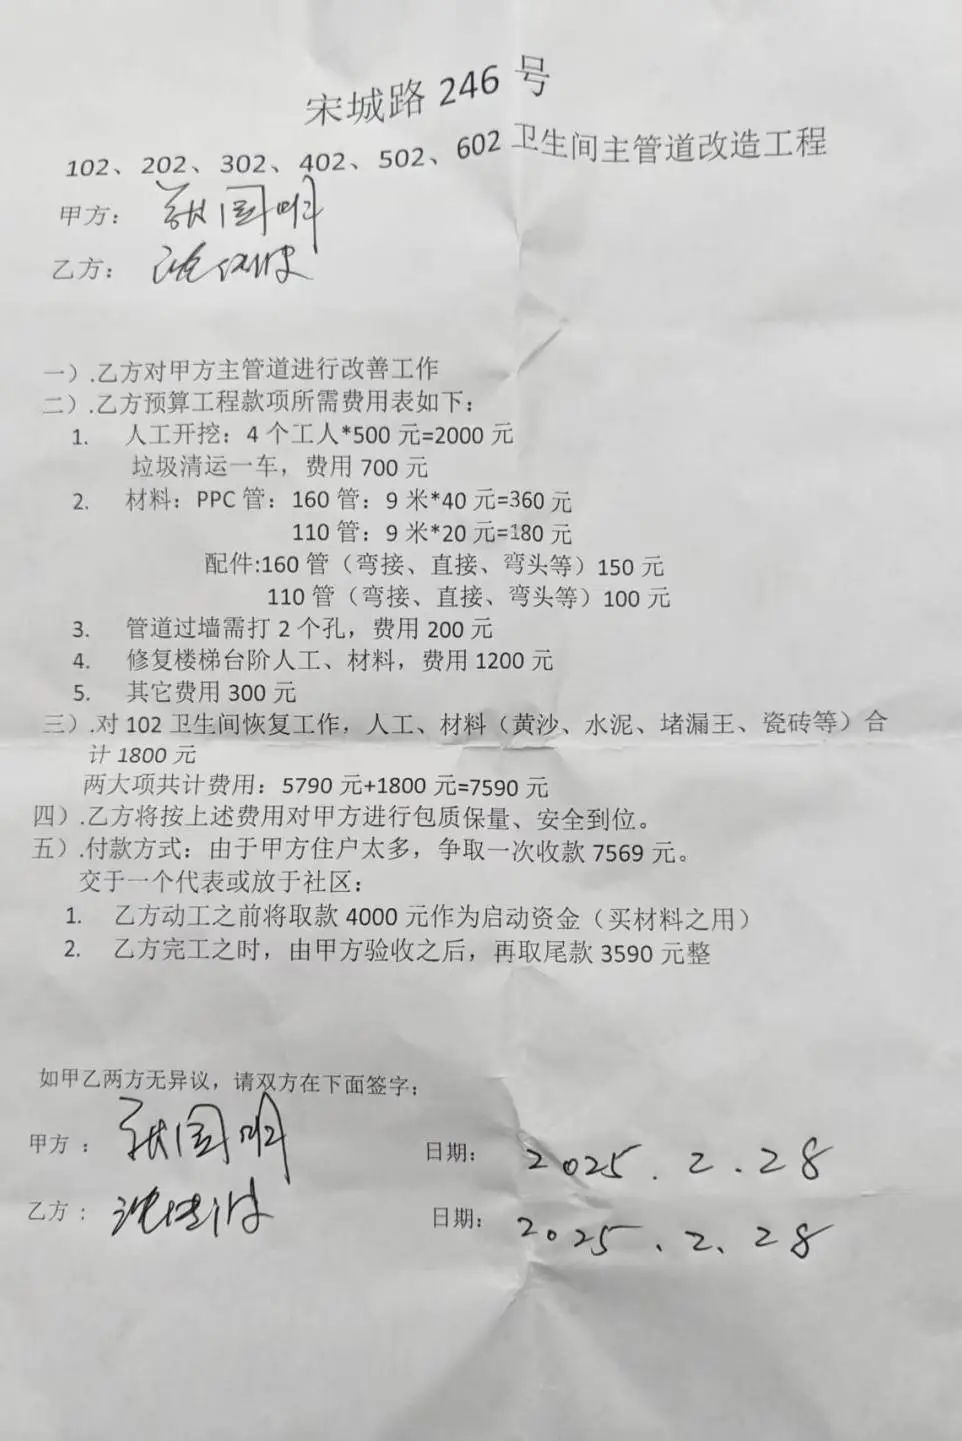 宋城路 246 号
102、202、302、402、502、602 卫生间主管道改造工程
甲方：国明
乙方：
一）.乙方对甲方主管道进行改善工作
二）.乙方预算工程款项所需费用表如下：
1. 人工开挖：4 个工人*500 元=2000 元
垃圾清运一车，费用 700 元
2. 材料：PPC 管：160 管：9 米*40 元=360 元
110 管：9 米*20 元=180 元
配件:160 管（弯接、直接、弯头等）150 元
110 管（弯接、直接、弯头等）100 元
3. 管道过墙需打 2 个孔，费用 200 元
4. 修复楼梯台阶人工、材料，费用 1200 元
5. 其它费用 300 元
三）.对 102 卫生间恢复工作，人工、材料（黄沙、水泥、堵漏王、瓷砖等）合
计 1800 元
两大项共计费用：5790 元+1800 元=7590 元
四）.乙方将按上述费用对甲方进行包质保量、安全到位。
五）.付款方式：由于甲方住户太多，争取一次收款 7569 元。
交于一个代表或放于社区：
1. 乙方动工之前将取款 4000 元作为启动资金（买材料之用）
2. 乙方完工之时，由甲方验收之后，再取尾款 3590 元整
如甲乙两方无异议，请双方在下面签字；
甲方：国明 日期：2025.2.28
乙方： 日期：2025.2.28